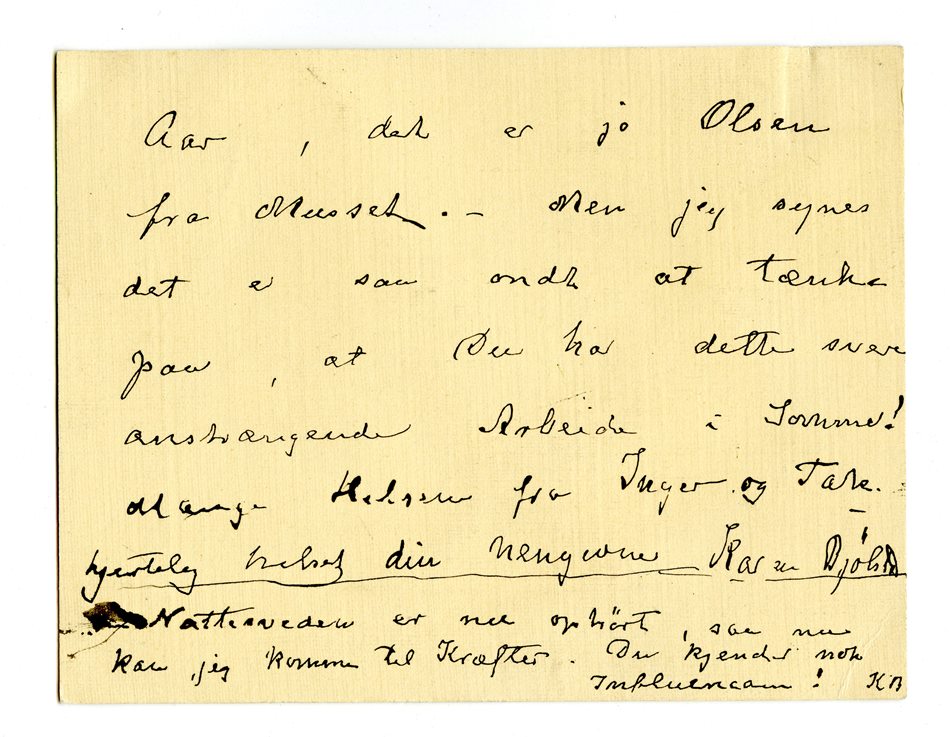 Aar, det er jo Olsen
fra Musset. – Men jeg synes
det er saa ondt at tænke
paa, at Du har dette svære
anstrængende Arbeide i Sommer!
Mange Hilsener fra Inger og
hjertelig hilset din hengivne Karen Bjølstad
Nattesveden er nu ophørt, saa nu
kan jeg komme til Kræfter. Du kjender nok
Influenzaen! KB